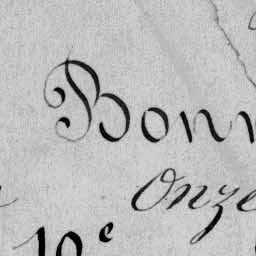 Bonn
Onze
10e